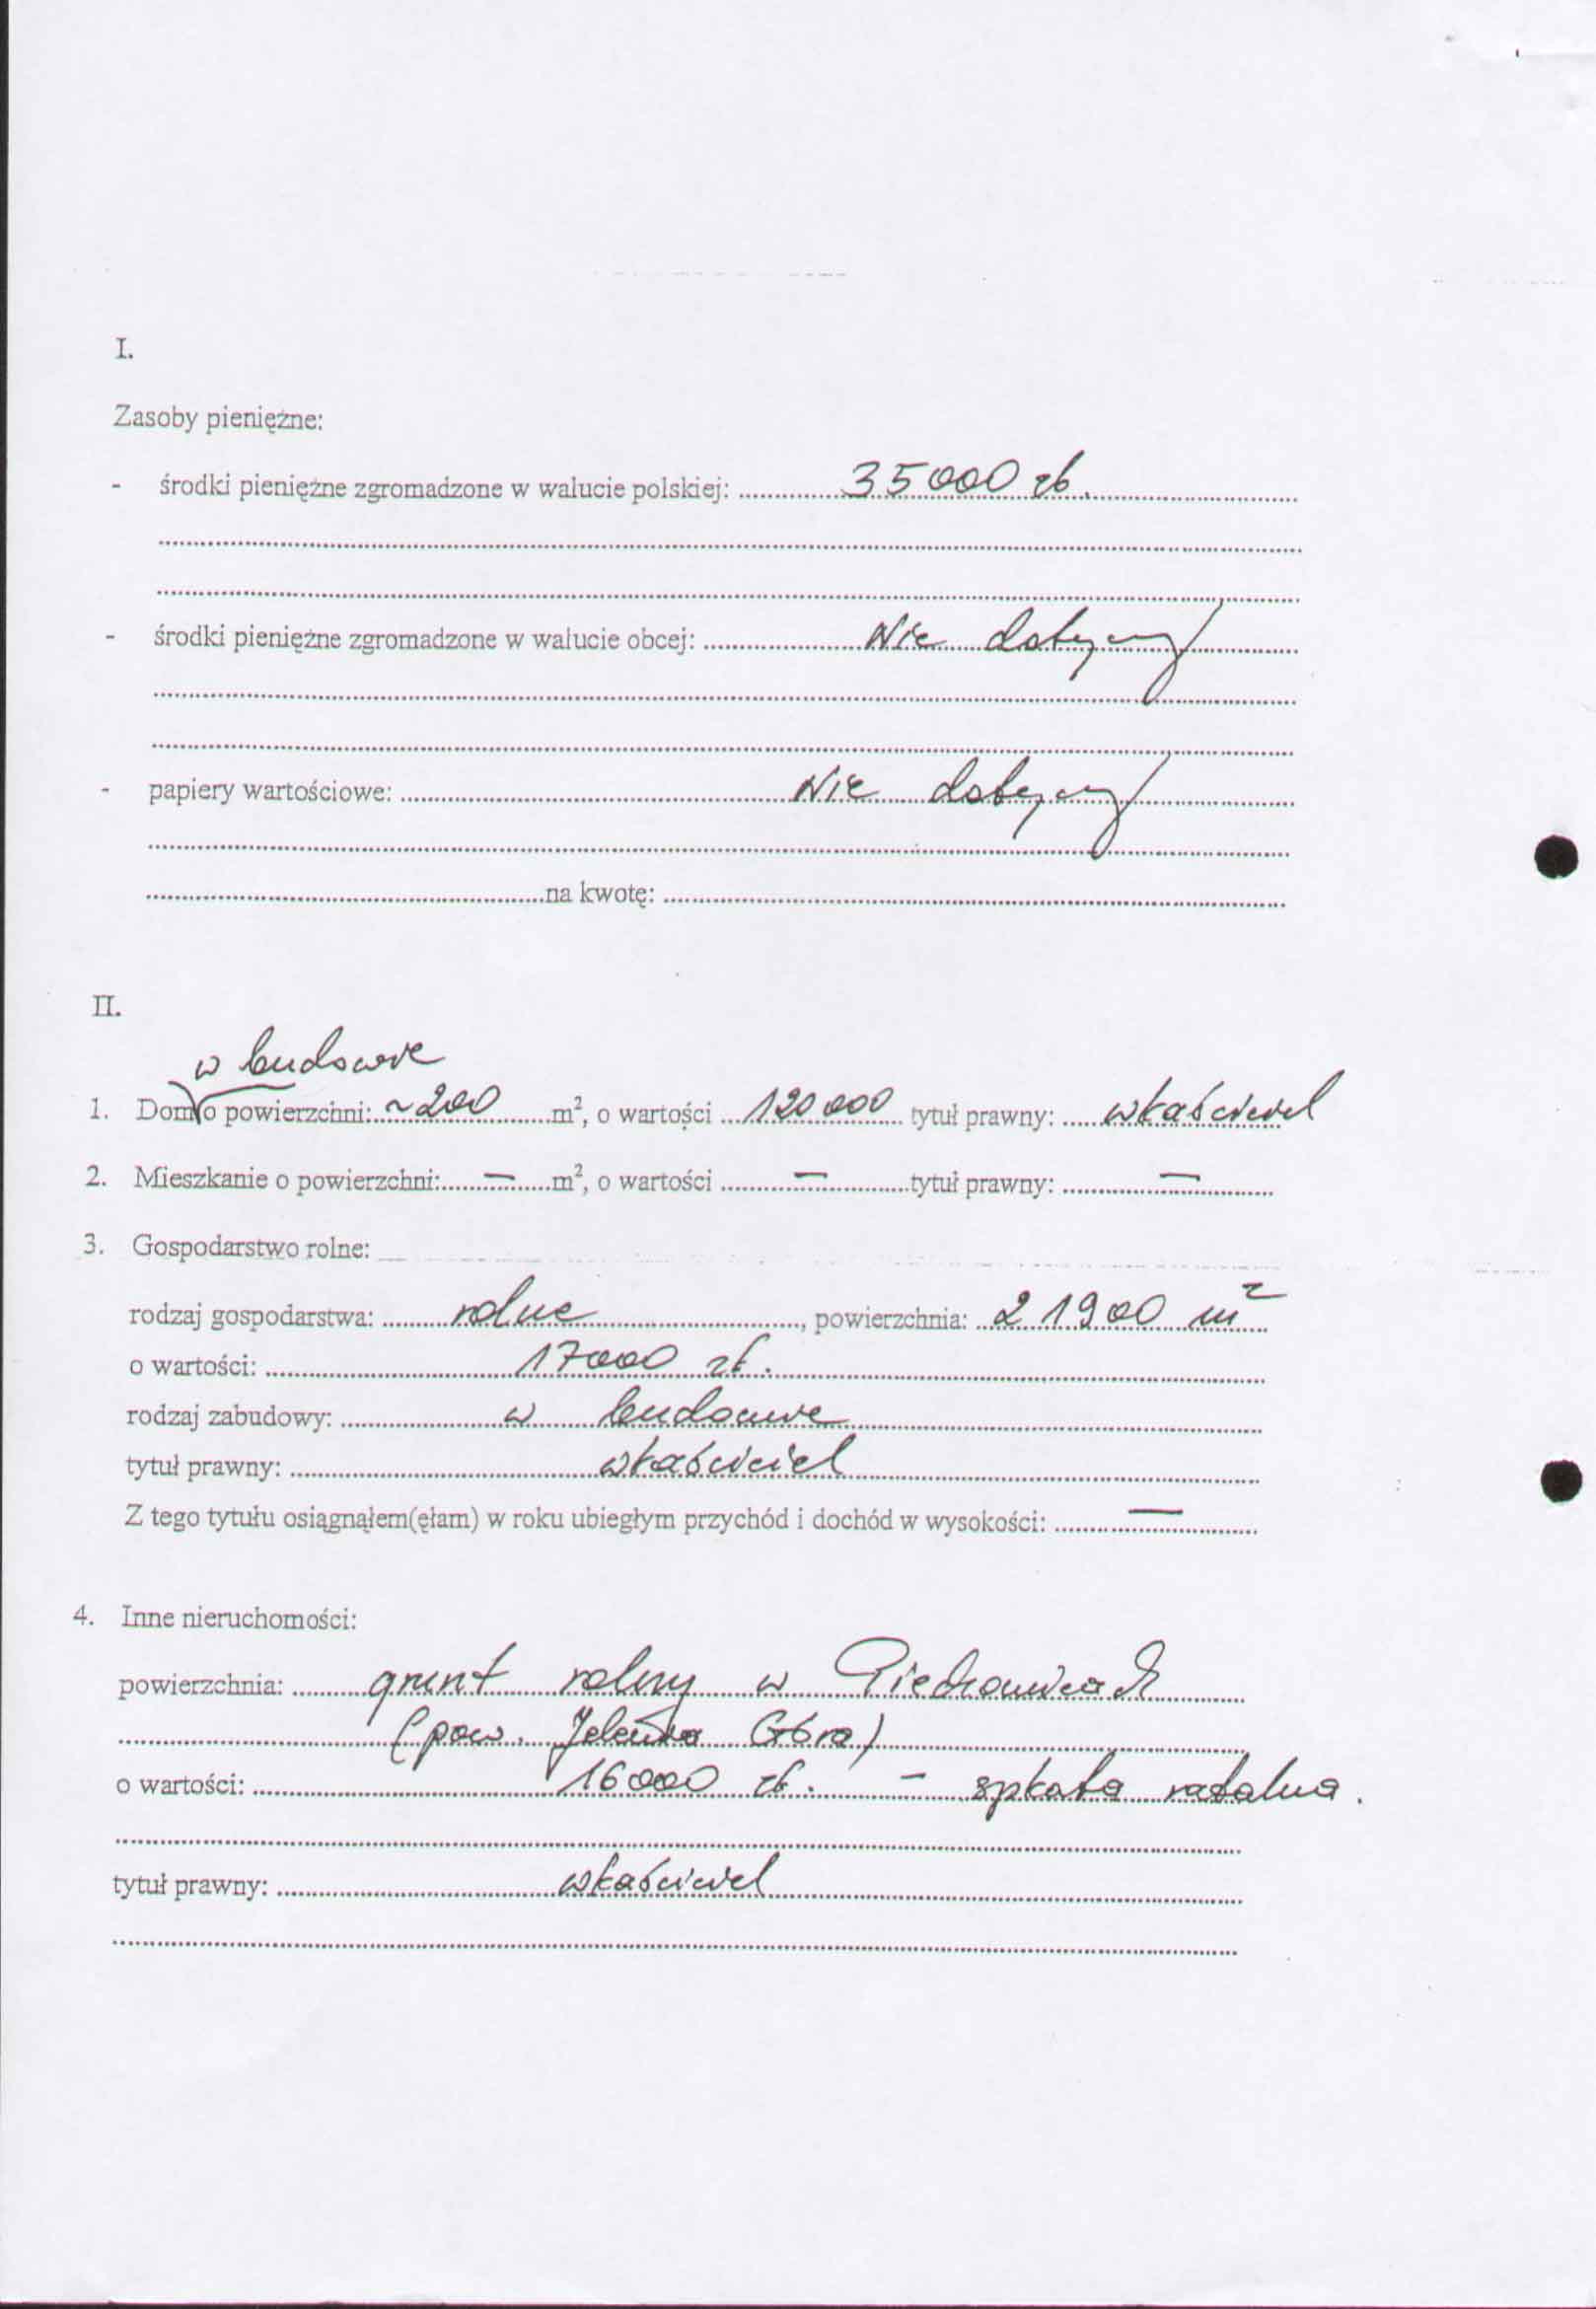 I.
Zasoby pieniężne:
- środki pieniężne zgromadzone w walucie polskiej: 35 000 zł.
- środki pieniężne zgromadzone w walucie obcej: Nie dotyczy
- papiery wartościowe: Nie dotyczy
na kwotę:
II.
w budowie
1. Dom o powierzchni: ~200 m², o wartości 120 000 tytuł prawny: właściciel
2. Mieszkanie o powierzchni: — m², o wartości — tytuł prawny: —
3. Gospodarstwo rolne:
rodzaj gospodarstwa: rolne, powierzchnia: 21900 m²
o wartości: 17000 zł.
rodzaj zabudowy: w budowie
tytuł prawny: właściciel
Z tego tytułu osiągnąłem(ęłam) w roku ubiegłym przychód i dochód w wysokości: —
4. Inne nieruchomości:
powierzchnia: grunt rolny w Piechowicach
(pow. Jelenia Góra)
o wartości: 16000 zł. – spłata ratalna.
tytuł prawny: właściciel